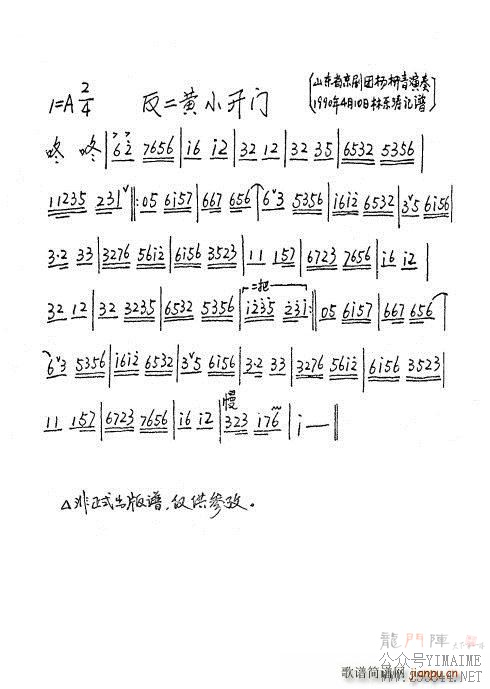 1=A 2/4 反二黄小开门 (山东省京剧团杨柳青演奏
1990年4月10日林东塔记谱)
咚 咚 | 6 2 7656 | i6 i2 | 32 12 | 32 35 | 6532 5356 |
11235 231 ‖: 05 6i57 | 667 656 | 6ˇ3 5356 | i6i2 6532 | 3ˇ5 6i56 |
3·2 33 | 3276 56i2 | 6i56 3523 | 11 157 | 6723 7656 | i6 i2 |
32 12 | 32 3235 | 6532 5356 | 二把 i235 231 :‖ 05 6i57 | 667 656 |
6ˇ3 5356 | i6i2 6532 | 3ˇ5 6i56 | 3·2 33 | 3276 56i2 | 6i56 3523 |
11 157 | 6723 7656 | i6 i2 | 慢 323 i76 | i — ‖
△非正式出版谱,仅供参改。
龍門陣
公众号YIMAIME
歌谱简谱网 jianpu.cn